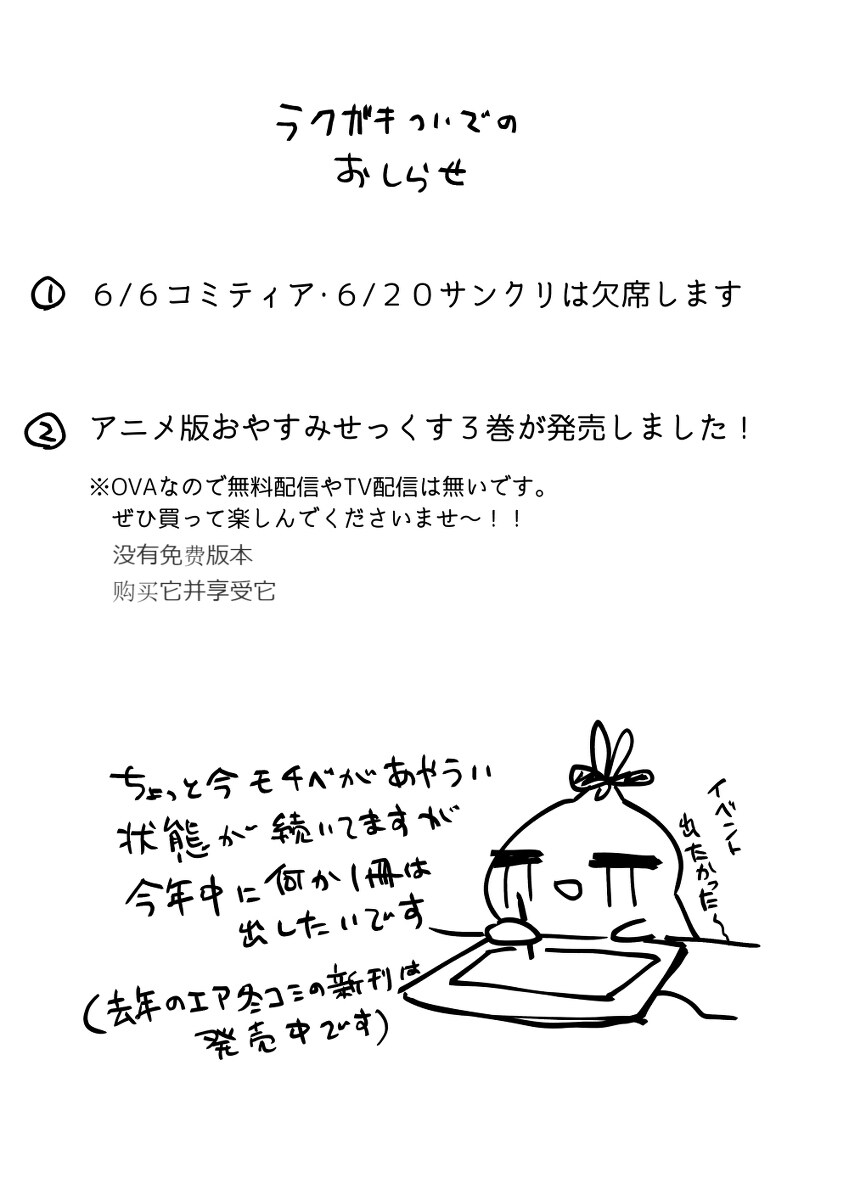 ラクガキついでの
おしらせ
① ６/６コミティア・６/２０サンクリは欠席します
② アニメ版おやすみせっくす３巻が発売しました！
※OVAなので無料配信やTV配信は無いです。
ぜひ買って楽しんでくださいませ～！！
没有免费版本
购买它并享受它
ちょっと今モチベがあやうい
状態が続いてますが
今年中に何か1冊は
出したいです
(去年のエア冬コミの新刊は
発売中です)
イベント
出たかった～